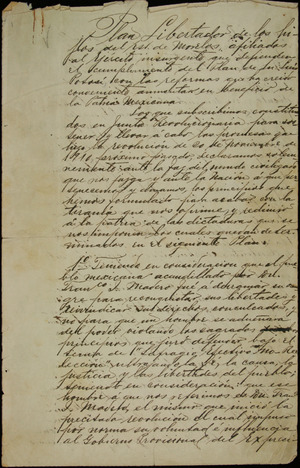 Plan Libertador de los hi-
jos del Est. de Morelos, afiliados
al Ejército insurgente que defienden
el cumplimiento del Plan de San Luis
Potosí, con las reformas que ha creido
conveniente aumentar en beneficio de
la Patria Mexicana.
Los que subscribimos, constituidos
en Junta Revolucionaria para sos-
tener y llevar á cabo las promesas que
hizo la revolución de 20 de Noviembre de
1910, próximo pasado, declaramos solem-
nemente ante la faz del mundo civilizado
que nos juzga y ante la Nación á que per-
tenecemos y amamos, los principios que
hemos formulado para acabar con la
tiranía que nos oprime y redimir
á la patria de las dictaduras que se
nos imponen. Los cuales quedan deter-
minados en el siguiente Plan:
1º Teniendo en consideración que el pue-
blo mexicano acaudillado por Dn.
Franco I. Madero fué á derramar su san-
gre para reconquistar sus libertades y
reivindicar sus derechos conculcados, y
no para que un hombre se adueñara
del poder violando los sagrados
principios que juró defender bajo el
lema de "Sufragio Efectivo" "No Ree-
lección" ultrajando la fé, la causa, la
justicia y las libertades del pueblo;
teniendo en consideración: que ese
hombre á que nos referimos es Dn. Fran-
co I. Madero, el mismo que inició la
precitada revolución el cual impuso
por norma su voluntad é influencia
al Gobierno Provisional del Ex-presi-